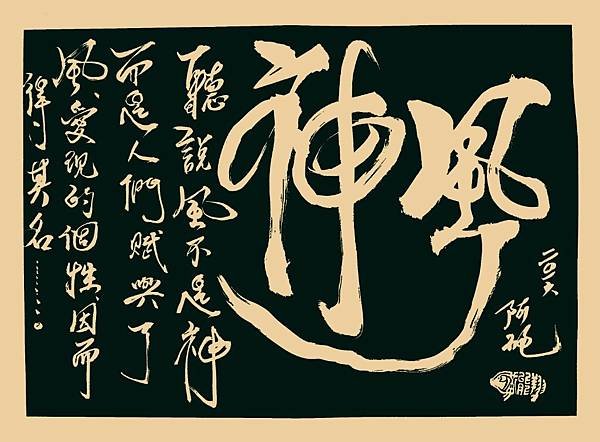 風神
二〇一六
聽說風不是神
而是人們賦與了
風、愛現的個性、因而
得 其名………。